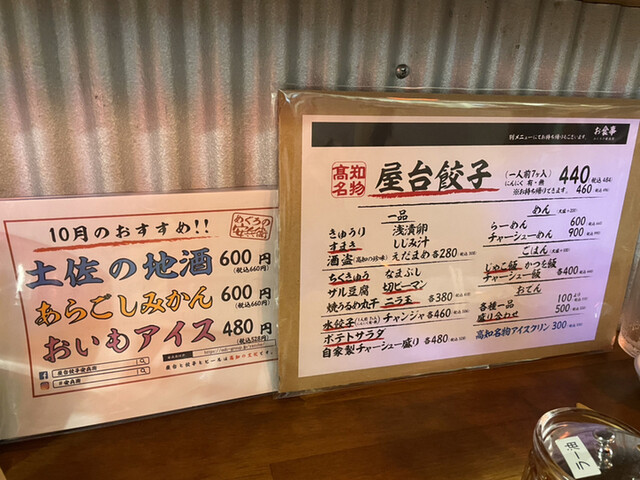 10月のおすすめ!!
土佐の地酒 600円
(税込660円)
あらごしみかん 600円
(税込660円)
おいもアイス 480円
(税込528円)
屋台餃子安兵衛
#安兵衛
屋台と餃子とビールは高知の文化です。
お食事
別メニューにてお持ち帰りもございます。
高知名物
屋台餃子
(一人前7ヶ入) 440 (税込484)
にんにく 有・無
※お持ち帰りできます。 460
一品
きゅうり 浅漬卵
すまき しじみ汁
酒盗(高知の珍味) えだまめ 各280
ちくきゅう なまぶし
ザル豆腐 切ピーマン
焼うるめ丸干 ニラ玉 各380
水餃子 チャンジャ 各460
ポテトサラダ
自家製チャーシュー盛り 各480
めん
らーめん 600
チャーシューめん 900
ごはん
じゃこ飯 かつを飯
チャーシュー飯 各400
おでん
各種一品 100より
盛り合わせ 500
高知名物アイスクリン 300
ラー油